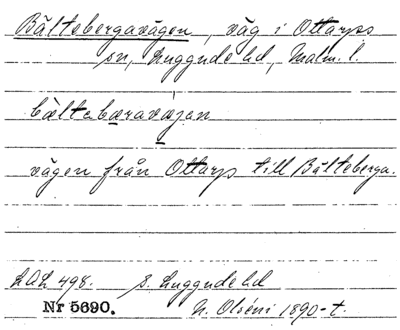 Bältebergavägen, väg i Ottarps
sn, Luggude hd, Malm. l.
bæltabæravæjan
vägen från Ottarp till Bälteberga.
LAL 498. S. Luggude hd
Nr 5690. N. Olséni 1890-t.